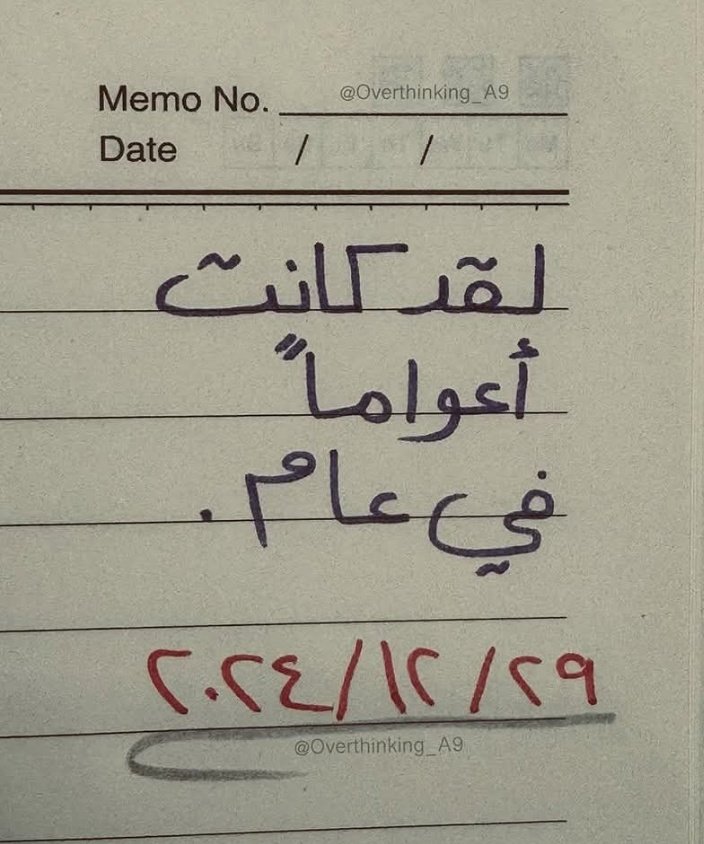 Memo No. @Overthinking_A9
Date / /
لقد كانت
أعواماً
في عام.
٢٠٢٤/١٢/٢٩
@Overthinking_A9